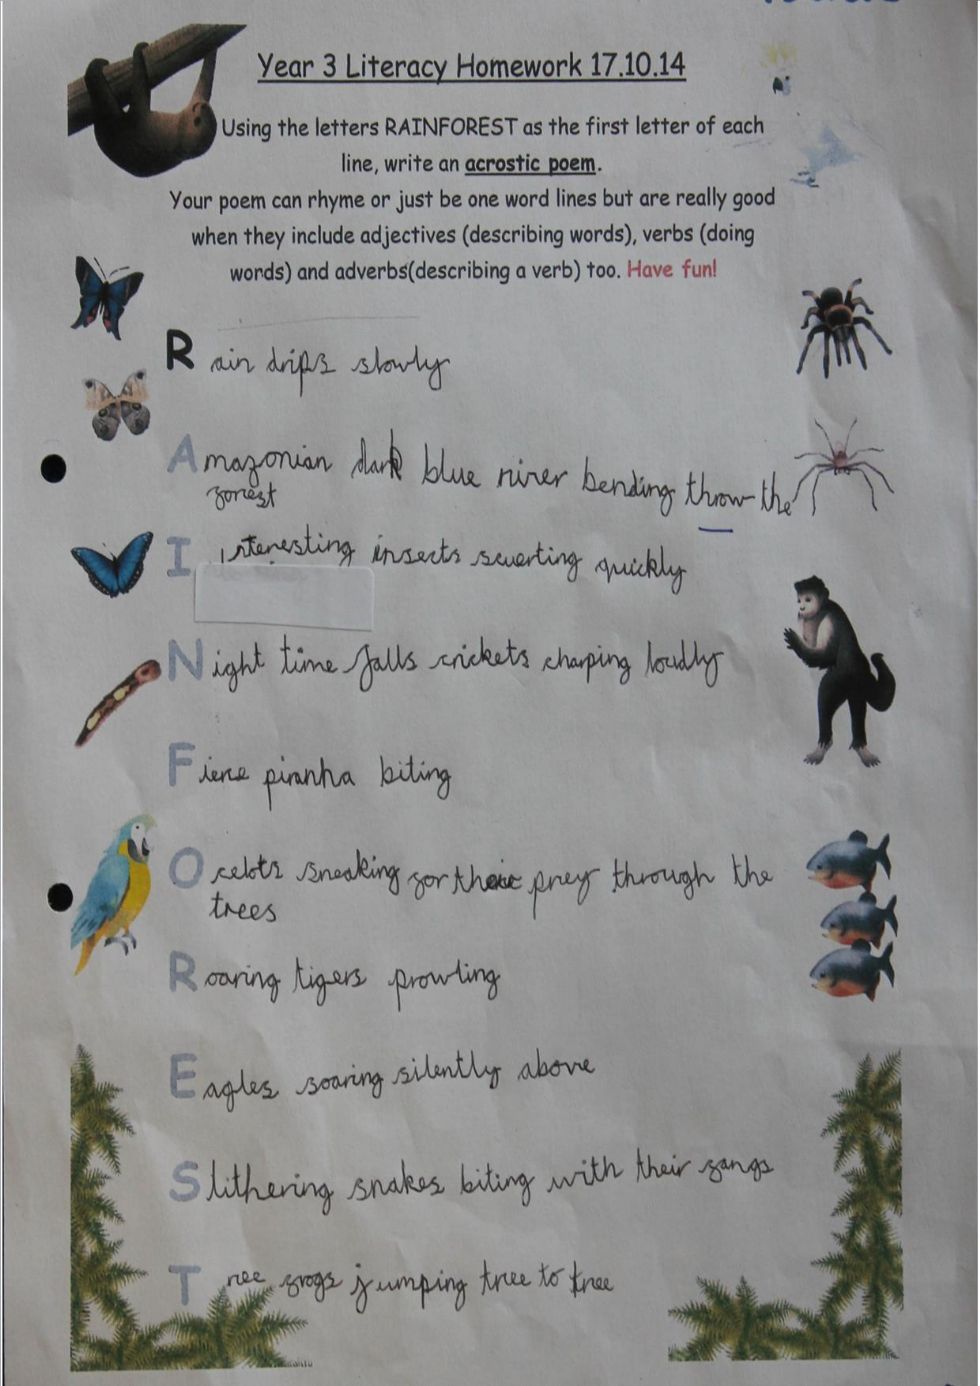 Year 3 Literacy Homework 17.10.14
Using the letters RAINFOREST as the first letter of each
line, write an acrostic poem.
Your poem can rhyme or just be one word lines but are really good
when they include adjectives (describing words), verbs (doing
words) and adverbs(describing a verb) too. Have fun!
Rain drips slowly
Amazonian dark blue river bending throw the
forest
Interesting insects scuerting quickly
Night time falls crickets charping loudly
Fierce piranha biting
Ocelots sneaking for their prey through the
trees
Roaring tigers prowling
Eagles soaring silently above
Slithering snakes biting with their fangs
Tree frogs jumping tree to tree